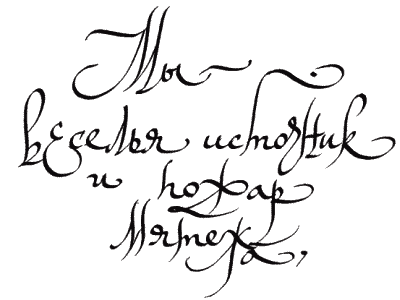 Мы —
веселья источник
и пожар
Мятежа,